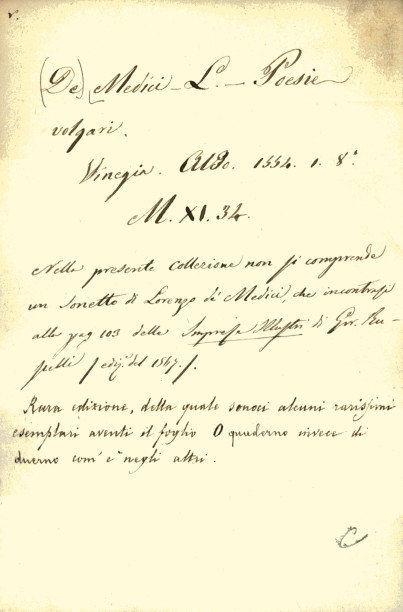 (De) Medici - L. - Poesie
volgari.
Vinegia. Aldo. 1554. 1. 8.°
M. XI. 34.
Nella presente Collezione non si comprende
un sonetto di Lorenzo de' Medici, che incontrasi
alla pag 103 delle Imprese Illustri di Gir. Ru-
scelli / ediz. del 1567. /.
Rara edizione, della quale sonoci alcuni rarissimi
esemplari aventi il foglio O quaderno invece di
duerno com' è negli altri.